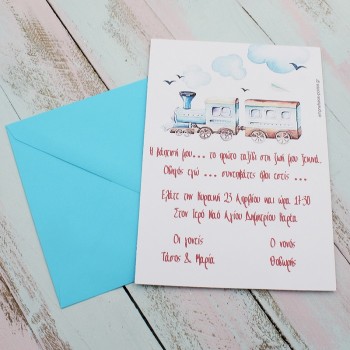 Η βάπτισή μου... το πρώτο ταξίδι στη ζωή μου ξεκινά..
Οδηγός εγώ ... συνεπιβάτες όλοι εσείς ...
Ελάτε την Κυριακή 23 Απριλίου και ώρα 17:30
Στον Ιερό Ναό Αγίου Δημητρίου Πάρτα.
Οι γονείς
Ο νονός
Τάσος & Μαρία
Θοδωρής